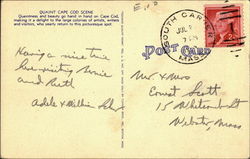 QUAINT CAPE COD SCENE
Quaintness and beauty go hand in hand on Cape Cod,
making it a delight to the large colonies of artists, writers
and visitors, who yearly return to this picturesque spot.
SOUTH CAR
JUL
MASS
POST CARD
Having a nice time
here visiting
and Beth
Adele & Millie
Mr & Mrs
Ernest Scott
15 Whitcomb St
Webster, Mass